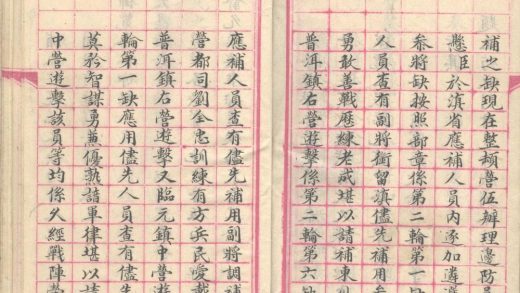 補之缺現在整頓營伍辦理邊防員
懸臣於滇省應補人員內逐加遴選
叅將缺按照部章係第二輪第一缺
人員查有副將銜留滇儘先補用叅
勇敢善戰歷練老成堪以請補東川
普洱鎮右營遊擊係第二輪第六缺
應補人員查有儘先補用副將調補
營都司劉全忠訓練有方兵民愛戴
普洱鎮右營遊擊又臨元鎮中營遊
輪第一缺應用儘先人員查有儘先
莫矜智謀勇兼優熟諳軍律堪以請
中營遊擊該員等均係久經戰陣